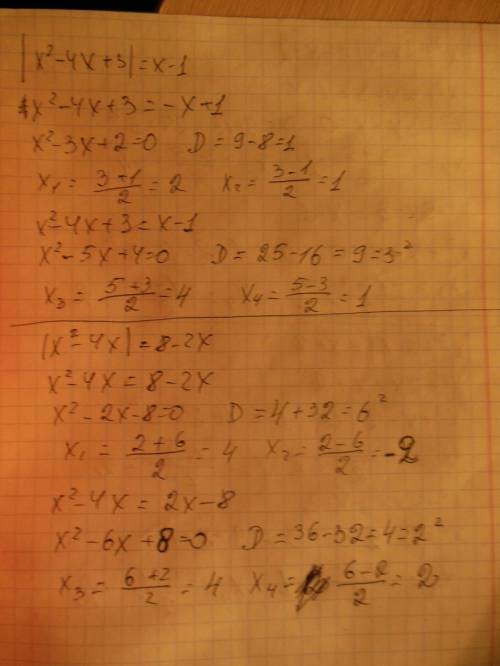 |x²-4x+3|=x-1
x²-4x+3=-x+1
x²-3x+2=0 D=9-8=1
x₁=(3+1)/2=2 x₂=(3-1)/2=1
x²-4x+3=x-1
x²-5x+4=0 D=25-16=9=3²
x₃=(5+3)/2=4 x₄=(5-3)/2=1
|x²-4x|=8-2x
x²-4x=8-2x
x²-2x-8=0 D=4+32=6²
x₁=(2+6)/2=4 x₂=(2-6)/2=-2
x²-4x=2x-8
x²-6x+8=0 D=36-32=4=2²
x₃=(6+2)/2=4 x₄=(6-2)/2=2